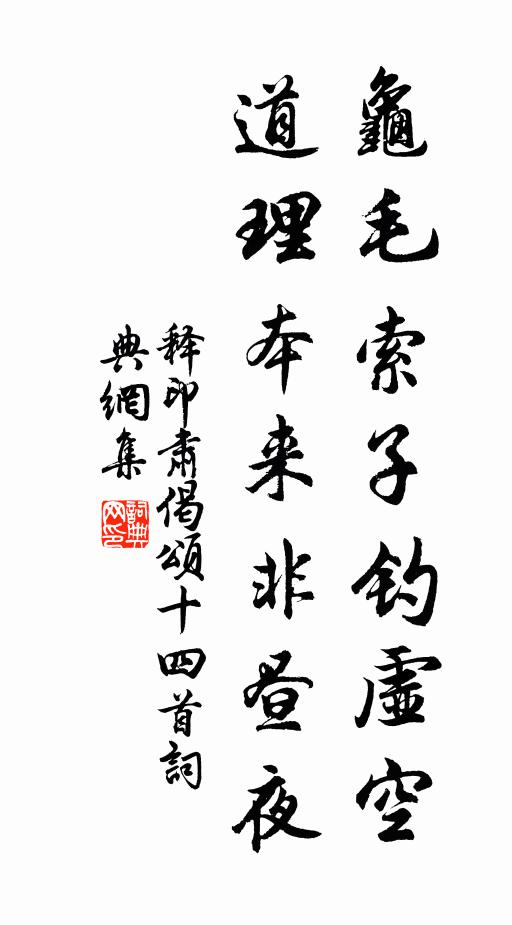 龜毛索子钓虛空
道理本来非昼夜
释印肃偈頌十四首詞
典網集
詞典网印